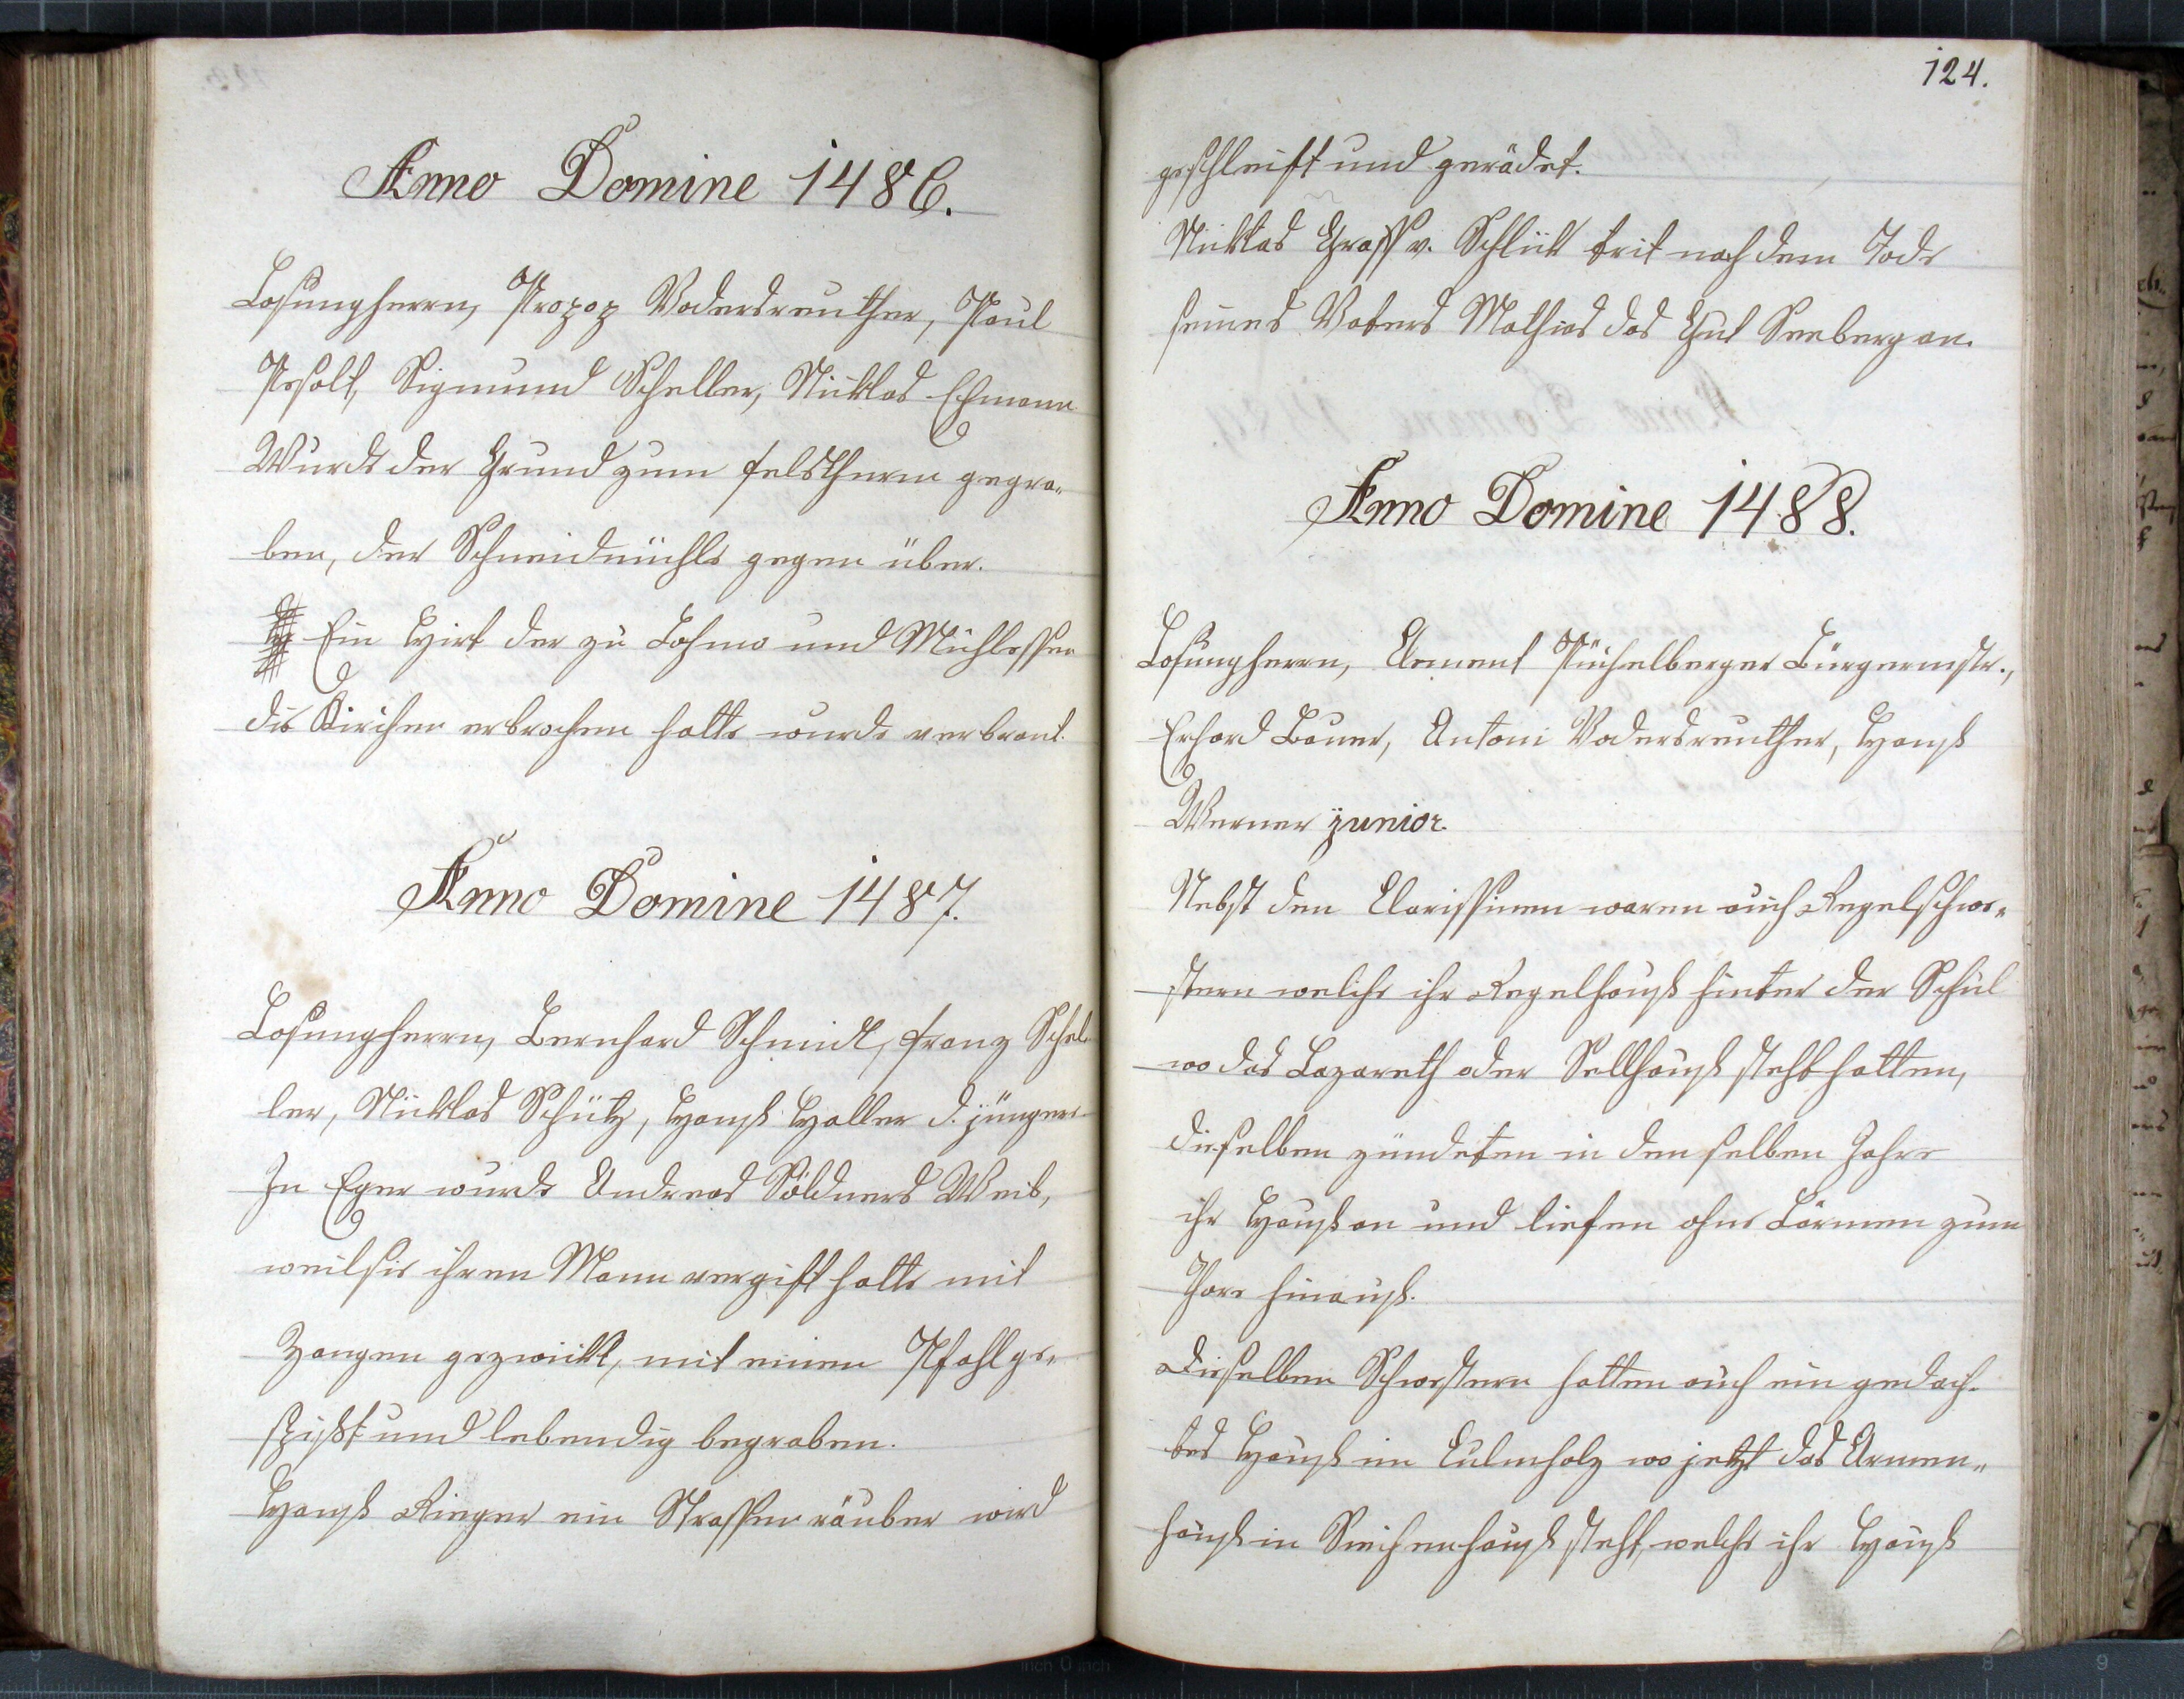 Anno Domine 1486.
Losungherrn, Propop Vodersreuther, Paul
Pesolt, Sigmund Scheller, Nicklas Ehmann
Wurde der Grund zum felsthurm gegra-
ben, der Schneidmühle gegen über.
Ein Hirt der zu Lohma und Mühlessen
die Kirchen erbrochen hatte wurde verbrant.
Anno Domine 1487.
Losungherrn, Bernhard Schmidt, franz Schel-
ler, Nicklas Schütz, Hanß Haller d. jüngere
In Eger wurde Andreas Söldners Weib,
weil sie ihren Mann vergift hatte mit
Zangen gezwickt, mit einen Pfahl ge-
spißt und lebendig begraben.
Hanß Rieger ein Strassenräuber wird
124.
geschleift und gerädet.
Nicklas Graff v. Schlick trit nach dem Tode
seines Vaters Mathias das Gut Seeberg an.
Anno Domine 1488.
Losungherrn, Clement Püchelberger Bürgermstr.,
Erhard Bauer, Antoni Vodersreuther, Hanß
Werner junior.
Nebst den Clarissinen waren auch Regelschwe-
stern welche ihr Regelhauß hinter der Schul
wo das Lazareth oder Sellhauß steht hatten,
dieselben zündeten in denselben Jahre
ihr Hauß an und liefen ohne Lärmen zum
Thore hinauß.
Dieselben Schwestern hatten auch ein gedach-
tes Hauß im Culmholz wo jetzt das Armen-
hauß in Siechenhauß steht, welche ihr Hauß